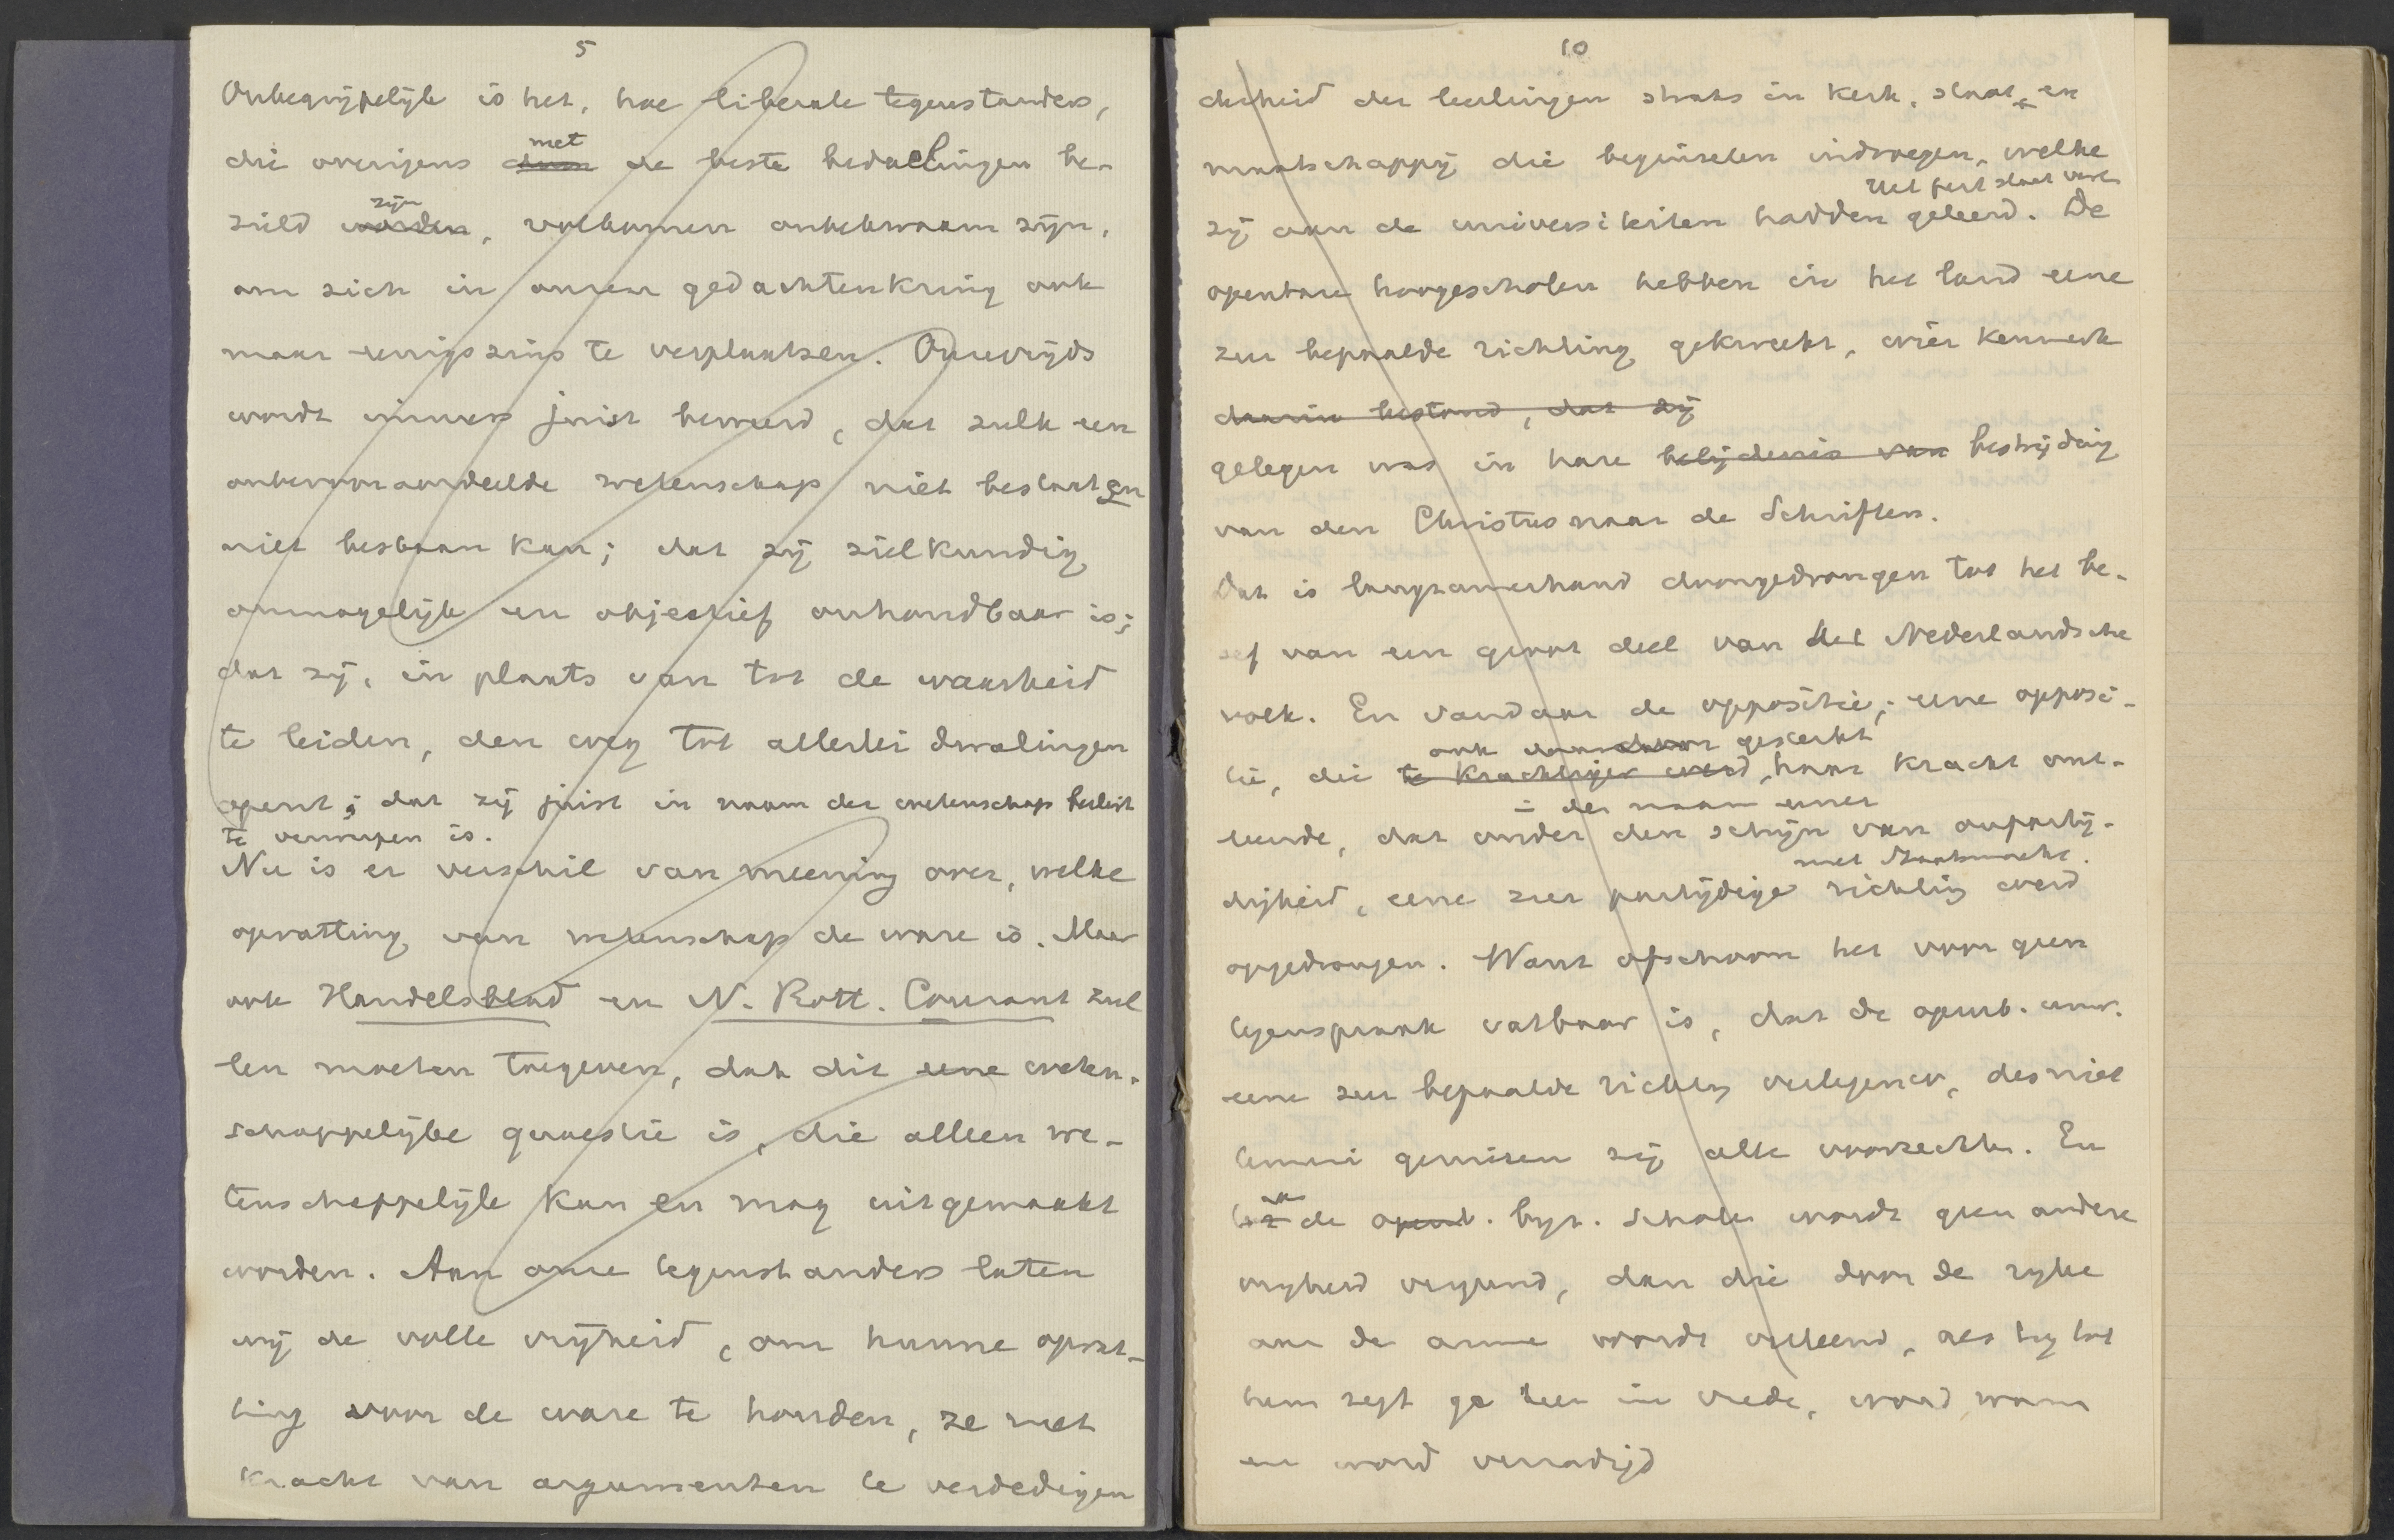 5
Onbegrijpelijk is het, hoe liberale tegenstanders,
met
die overigens door de beste bedoelingen be-
zijn
zield worden, volkomen onbekwaam zijn,
om zich in onzen gedachtenkring ook
maar eenigszins te verplaatsen. Onzerzijds
wordt immers juist beweerd, dat zulk een
onbevooroordeelde wetenschap niet bestaat en
niet bestaan kan; dat zij zielkundig
onmogelijk en objectief onhoudbaar is;
dat zij, in plaats van tot de waarheid
te leiden, den weg tot allerlei dwalingen
opent; dat zij juist in naam der wetenschap beslist
te verwerpen is.
Nu is er verschil van meening over, welke
opvatting van wetenschap de ware is. Maar
ook Handelsblad en N. Rott. Courant zul
len moeten toegeven, dat dit eene weten-
schappelijke quaestie is, die alleen we-
tenschappelijk kan en mag uitgemaakt
worden. Aan onze tegenstanders laten
wij de volle vrijheid, om hunne opvat-
ting voor de ware te houden, ze met
kracht van argumenten te verdedigen
10
derheid der leerlingen straks in kerk, staat en
maatschappij die beginselen indroegen, welke
Het feit staat vast
zij aan de universiteiten hadden geleerd. De
openbare hoogescholen hebben in het land eene
zeer bepaalde richting gekweekt, wier kenmerk
daarin bestond, dat zij
gelegen was in hare belijdenis van bestrijding
van den Christus naar de Schriften.
Dat is langzamerhand doorgedrongen tot het be-
sef van een groot deel van het Nederlandsche
volk. En vandaar de oppositie; eene opposi-
ook daardoor gesterkt
tie, die te krachtiger werd, haar kracht ont-
in den naam eener
leende, dat onder den schijn van onpartij-
met Staatsmacht.
digheid, eene zeer partijdige richting werd
opgedrongen. Want ofschoon het voor geen
tegenspraak vatbaar is, dat de openb. univ.
eene zeer bepaalde richting vertegenw., des niet
temin genieten zij alle voorrechten. En
aan de openb. byz. scholen wordt geen andere
vrijheid vergund, dan die door de rijke
aan de arme wordt verleend, als hij tot
hem zegt ga heen in vrede, word warm
en word verzadigd